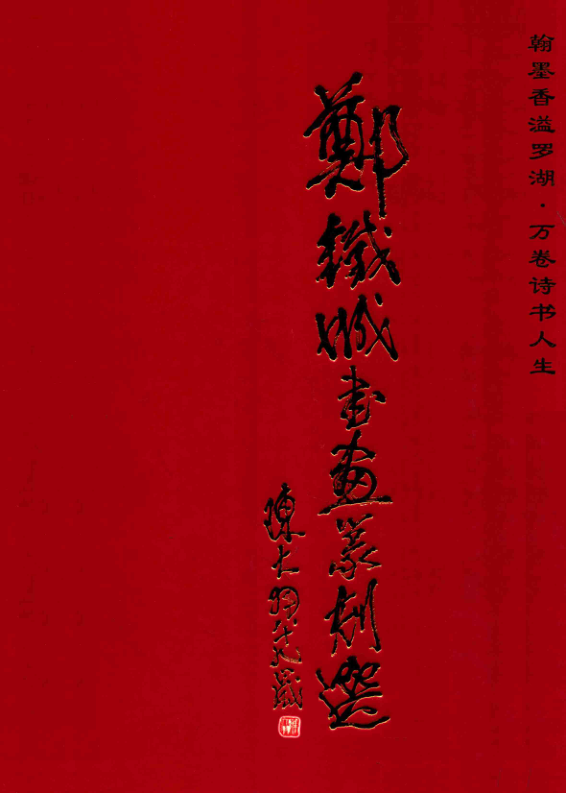 翰墨香溢罗湖·万卷诗书人生
鄭鐵城書畫篆刻選
陳大羽年九歲